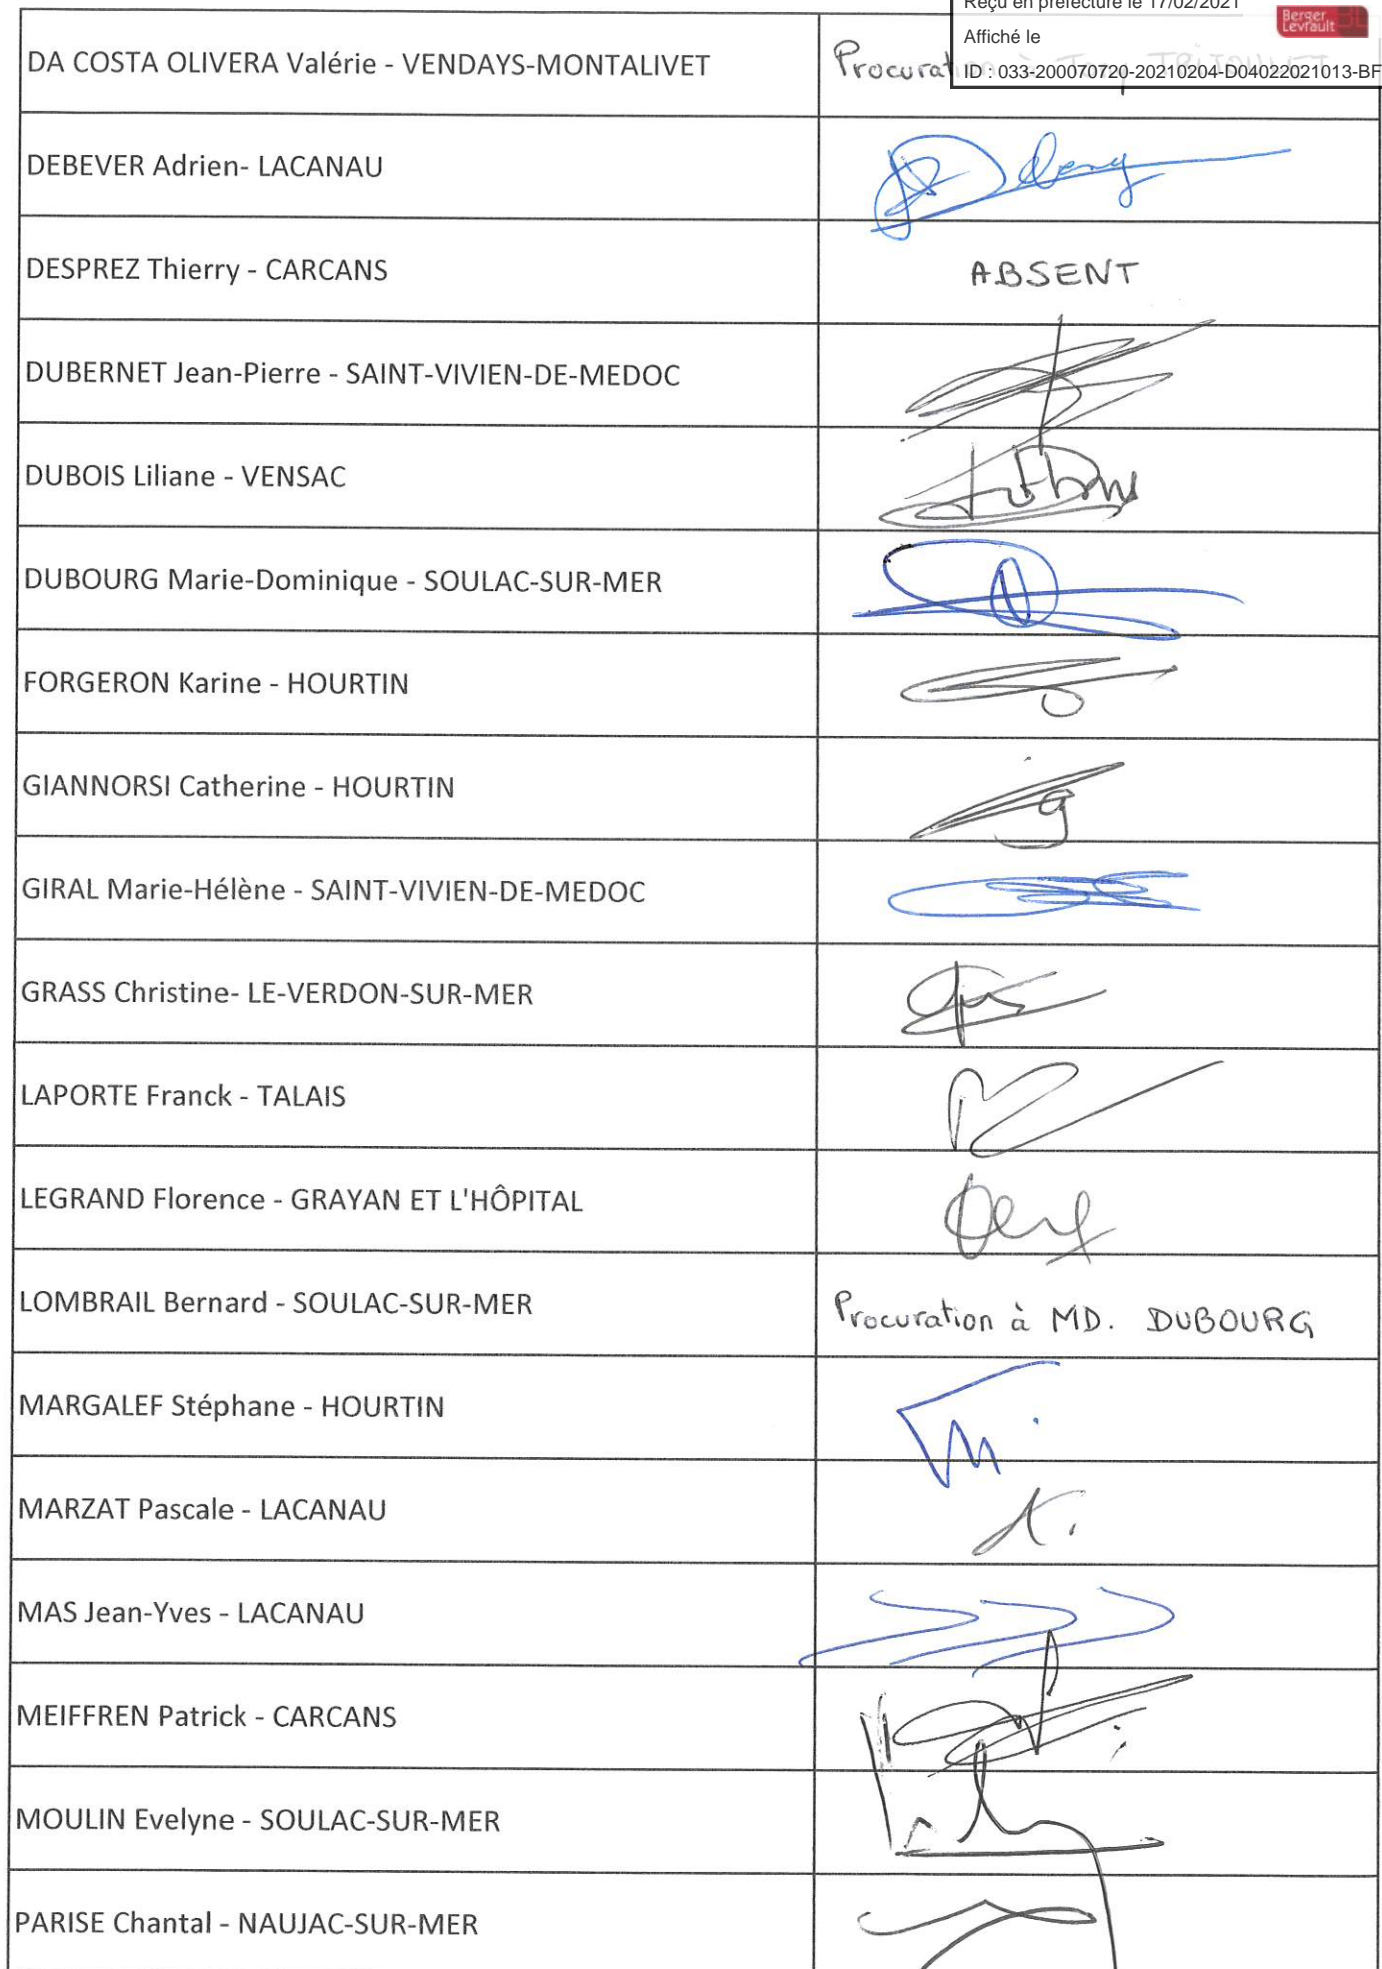 Reçu en préfecture le 17/02/2021
Affiché le
Berger Levrault
ID : 033-200070720-20210204-D04022021013-BF
DA COSTA OLIVERA Valérie - VENDAYS-MONTALIVET
DEBEVER Adrien- LACANAU
DESPREZ Thierry - CARCANS ABSENT
DUBERNET Jean-Pierre - SAINT-VIVIEN-DE-MEDOC
DUBOIS Liliane - VENSAC
DUBOURG Marie-Dominique - SOULAC-SUR-MER
FORGERON Karine - HOURTIN
GIANNORSI Catherine - HOURTIN
GIRAL Marie-Hélène - SAINT-VIVIEN-DE-MEDOC
GRASS Christine- LE-VERDON-SUR-MER
LAPORTE Franck - TALAIS
LEGRAND Florence - GRAYAN ET L'HÔPITAL
LOMBRAIL Bernard - SOULAC-SUR-MER Procuration à MD. DUBOURG
MARGALEF Stéphane - HOURTIN
MARZAT Pascale - LACANAU
MAS Jean-Yves - LACANAU
MEIFFREN Patrick - CARCANS
MOULIN Evelyne - SOULAC-SUR-MER
PARISE Chantal - NAUJAC-SUR-MER